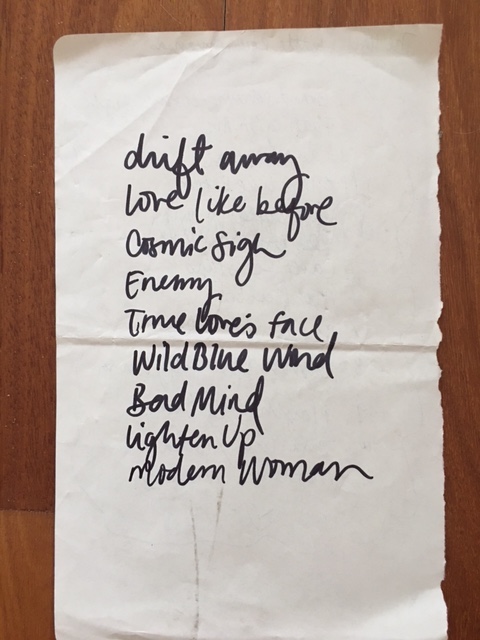 drift away
Love like before
Cosmic Sigh
Enemy
True Love's Face
Wild Blue Wind
Bad Mind
Lighten Up
Modern Woman